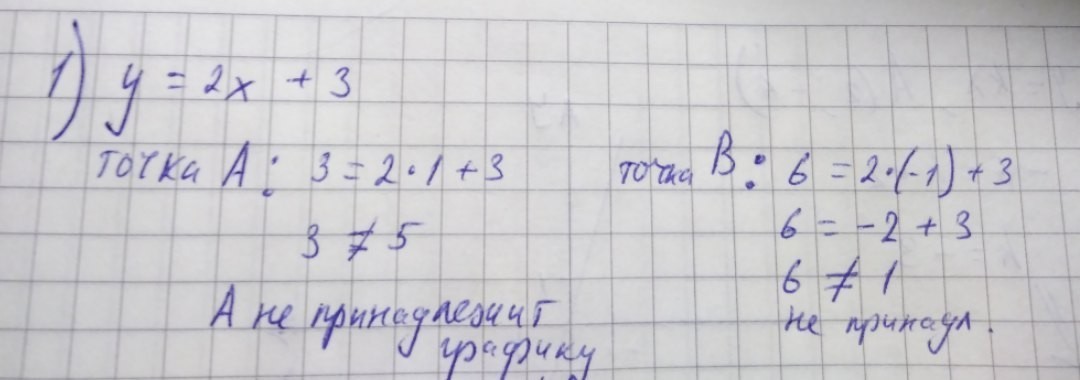 1) y = 2x + 3
точка A: 3 = 2·1 + 3
3 ≠ 5
A не принадлежит
графику
точка B: 6 = 2·(-1) + 3
6 = -2 + 3
6 ≠ 1
не принадл.